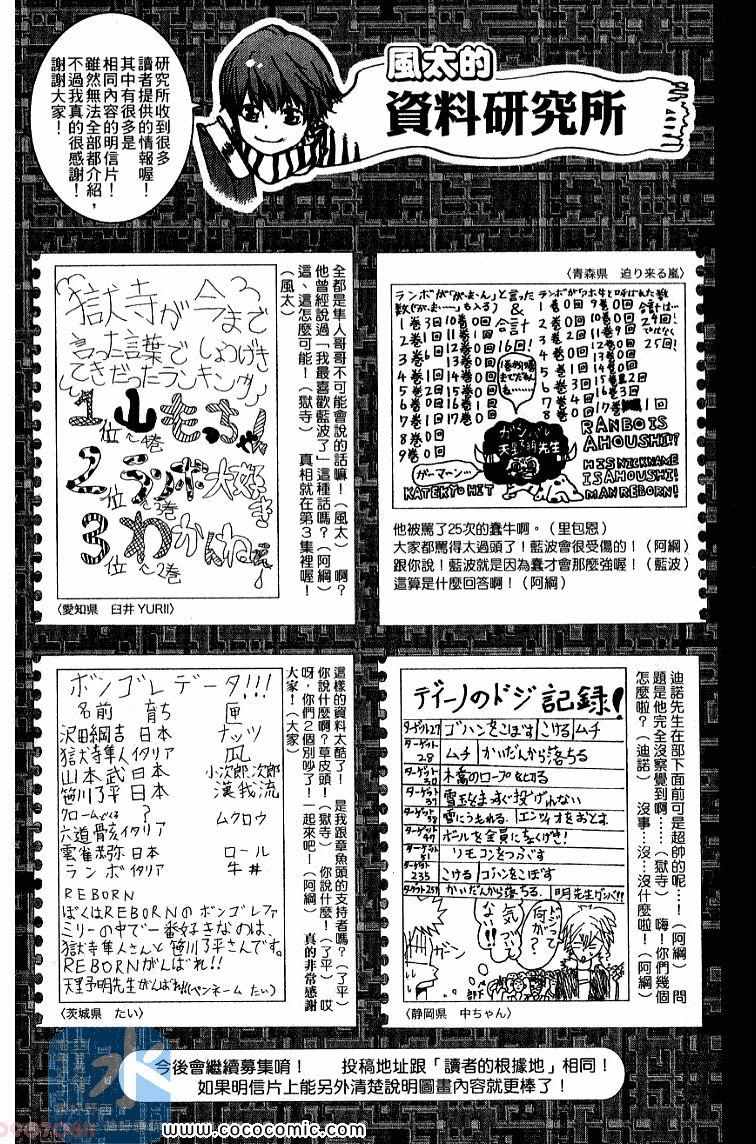 風太的
資料研究所
研究所收到很多
讀者提供的情報喔！
其中有很多是
相同內容的明信片！
雖然無法全部都介紹，
不過我真的很感謝！
謝謝大家！
〈青森県　迫り来る嵐〉
ランボが「がーまーん」と言った
ランボがアホ牛と呼ばれた数
&
合計
16回！
1巻3回
2巻6回
3巻1回
4巻2回
5巻1回
6巻1回
7巻0回
8巻0回
9巻0回
1巻0回
2巻0回
天野明先生
ガーマーン…
RANBO IS
AHOUSHI!!
HIS NICKNAME
IS AHOUSHI!
KATEKYO HIT
MAN REBORN!
他被罵了25次的蠢牛啊。（里包恩）
大家都罵得太過頭了！藍波會很受傷的！（阿綱）
跟你說！藍波就是因為蠢才會那麼強喔！（藍波）
這算是什麼回答啊！（阿綱）
獄寺が今まで
言った言葉でしょうげき
てきだったランキング
1位 山もっちゃん！
～4巻
2位 ランボ大好き
～3巻
3位 わかんねえ！
～2巻
全都是隼人哥哥不可能會說的話嘛！（風太）　啊？
他曾經說過「我最喜歡藍波了」這種話嗎？（阿綱）
這、這怎麼可能！（獄寺）　真相就在第3集裡喔！
（風太）
〈愛知県　臼井YURII〉
ディーノのドジ記録！
ターゲット27 ゴハンをこぼす こける ムチ
ターゲット28 ムチ かいだんから落ちる
ターゲット30 木橋のロープをとる
ターゲット37 雪玉をまっすぐ投げれない
ターゲット38 雪にうもれる。エンツィオをおとす
ターゲット47 ボールを全員にぶつけき！
ターゲット51 リモコンをつぶす
ターゲット235 こける ゴハンをこぼす
ターゲット257 かいだんから落ちる。 明先生ガンバ!!
何が？って
気づいて
ない!!
ガーン
部下
迪諾先生在部下面前可是超帥的呢…！（阿綱）　問
題是他完全沒察覺到啊……（獄寺）　嗨！你們幾個
怎麼啦？（迪諾）　沒事…沒…沒什麼啦！（阿綱）
〈静岡県　中ちゃん〉
ボンゴレデータ!!!
名前　育ち　匣
沢田綱吉　日本　ナッツ
獄寺隼人　イタリア　瓜
山本武　日本　小次郎、次郎
笹川了平　日本　漢我流
クロームどくろ　？　ムクロウ
六道骸　イタリア
雲雀恭弥　日本　ロール
ランボ　イタリア　牛丼
REBORN
ぼくはREBORNのボンゴレファ
ミリーの中で一番好きなのは、
獄寺隼人さんと笹川了平さんです。
REBORNがんばれ!!
天野明先生がんばれ!!(ペンネーム たい)
這樣的資料太酷了！　是我跟章魚頭的支持者嗎？（了平）
你說什麼啊？草皮頭！（獄寺）　你說什麼！（了平）　哎
呀，你們2個別吵了！一起來吧！（阿綱）　真的非常感謝
大家！（大家）
〈茨城県　たい〉
今後會繼續募集唷！　投稿地址跟「讀者的根據地」相同！
如果明信片上能另外清楚說明圖畫內容就更棒了！
水
漫画
www.cococomic.com